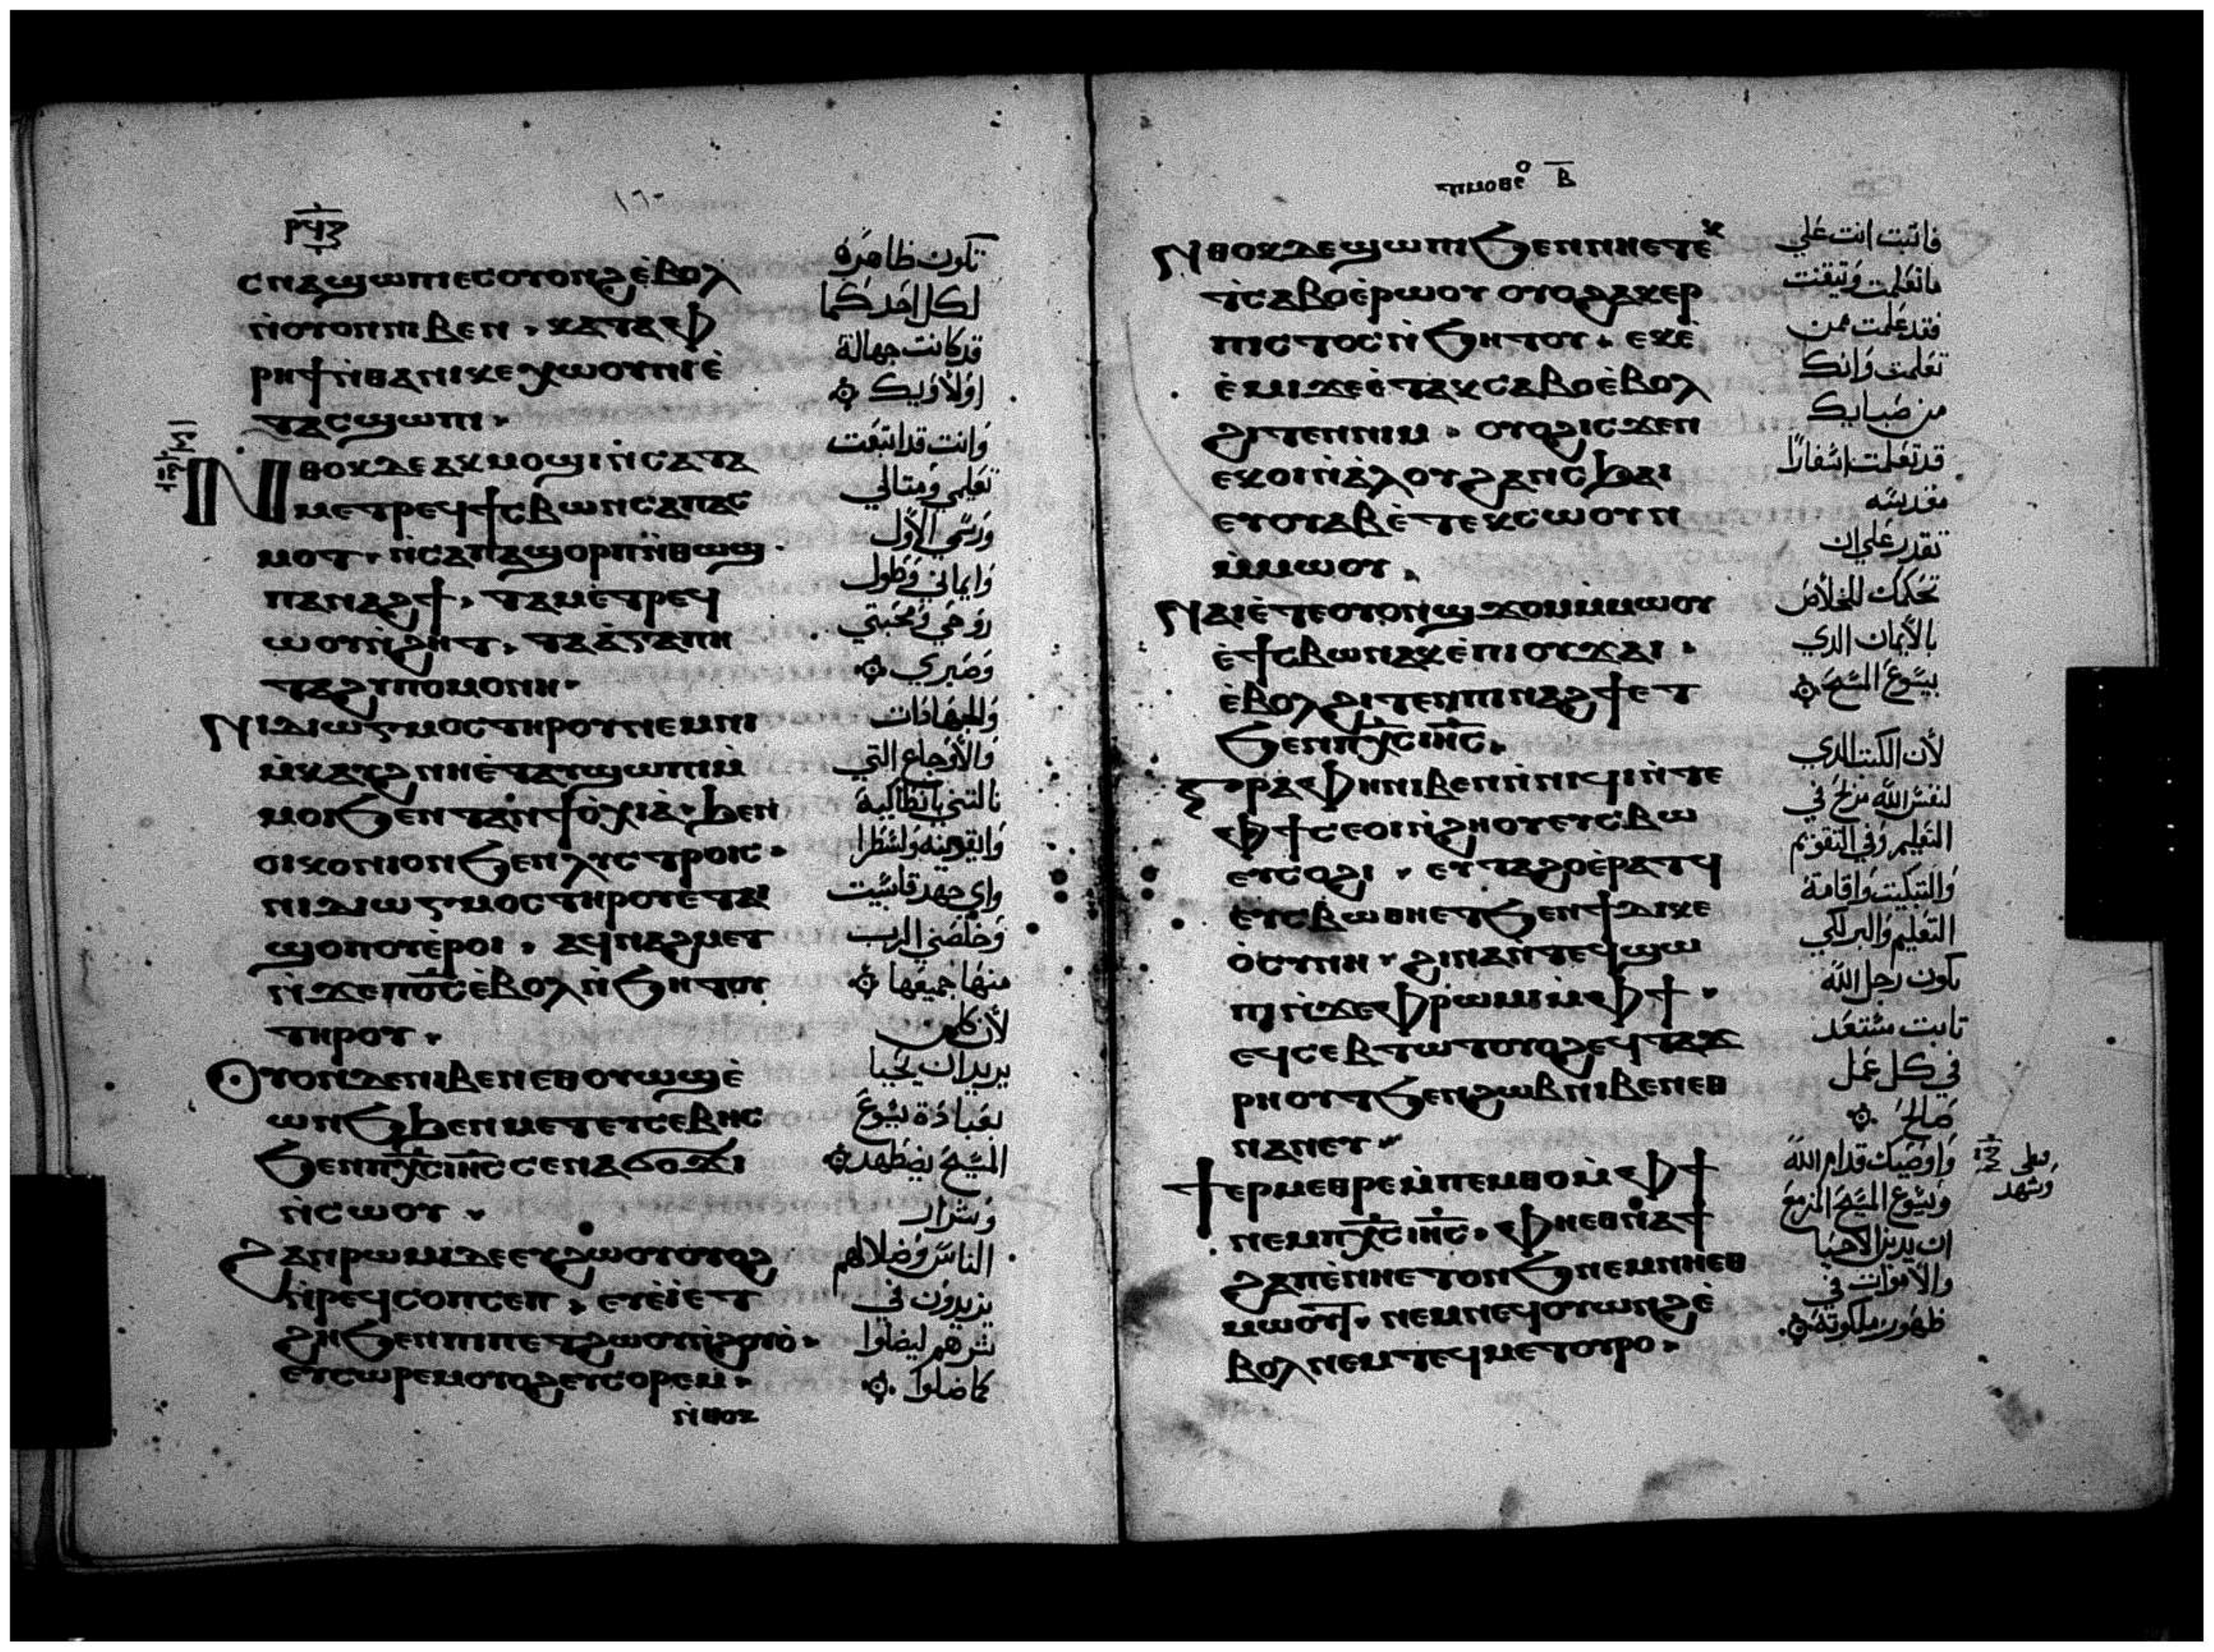 ⲣϥⲍ
ⲥⲛⲁϣⲱⲡⲓⲉⲥⲟⲩⲟⲛϩⲉ̀ⲃⲟⲗ
ⲛ̀ⲟⲩⲟⲛⲛⲓⲃⲉⲛ ⲕⲁⲧⲁⲫ
ⲣⲏϯⲛ̀ⲑⲁⲛⲓⲕⲉⲭⲱⲟⲩⲛⲓⲉ̀
ⲧⲁⲥϣⲱⲡⲓ
ⲛⲑⲟⲕⲇⲉⲁⲕⲙⲟϣⲓⲛ̀ⲥⲁⲧⲁ
ⲙⲉⲧⲣⲉϥϯⲥⲃⲱⲛⲥⲁⲡⲁⲥ
ⲙⲟⲧ ⲛ̀ⲥⲁⲡⲁϣⲟⲣⲡⲛ̀ⲑⲱϣ
ⲡⲁⲛⲁϩϯ ⲧⲁⲙⲉⲧⲣⲉϥ
ⲱⲟⲩⲛ̀ϩⲏⲧ ⲧⲁⲁ̀ⲅⲁⲡⲏ
ⲧⲁϩⲩⲡⲟⲙⲟⲛⲏ
ⲛⲓⲇⲓⲱⲅⲙⲟⲥⲧⲏⲣⲟⲩⲛⲉⲙⲛⲓ
ⲙ̀ⲕⲁⲩϩⲛⲏⲉ̀ⲧⲁⲩϣⲱⲡⲓⲙ̀
ⲙⲟⲓϧⲉⲛⲧⲁⲛϯⲟ̀ⲭⲓⲁ̀ ϧⲉⲛ
ⲟⲓⲕⲟⲛⲓⲟⲛϧⲉⲛⲗⲩⲥⲧⲣⲟⲓⲥ
ⲛⲓⲇⲓⲱⲅⲙⲟⲥⲧⲏⲣⲟⲩⲉⲧⲁⲓ
ϣⲟⲡⲟⲩⲉ̀ⲣⲟⲓ ⲁϥⲛⲁϩⲙⲉⲧ
ⲛ̀ϫⲉⲡⲟ̅ⲥ̅ⲉ̀ⲃⲟⲗⲛ̀ϧⲏⲧⲟⲩ
ⲧⲏⲣⲟⲩ
ⲟⲩⲟⲛⲇⲉⲛⲓⲃⲉⲛⲉⲑⲟⲩⲱϣⲉ̀
ⲱⲛϧϧⲉⲛⲙⲉⲧⲉⲩⲥⲉⲃⲏⲥ
ϧⲉⲛⲡⲭ̅ⲥ̅ⲓⲏ̅ⲥ̅ⲥⲉⲛⲁϭⲟϫⲓ
ⲛ̀ⲥⲱⲟⲩ
ϩⲁⲛⲣⲱⲙⲓⲇⲉⲉⲩϩⲱⲟⲩⲟⲩⲟϩ
ⲛ̀ⲣⲉϥⲥⲟⲡⲥⲉⲡ ⲉⲩⲉ̀ⲓ̀ⲉⲧ
ϩⲏϧⲉⲛⲡⲓⲡⲉⲧϩⲱⲟⲩⲛ̀ϩⲟⲩⲟ̀
ⲉⲩⲥⲱⲣⲉⲙⲟⲩⲟϩⲉⲩⲥⲟⲣⲉⲙ
ⲛ̀ⲑⲟⲕ
تكون ظاهرة
لكل احد كما
قد كانت جهالة
اولاوليك
وانت قد اتبعت
تعليمي ومثالي
ورسمي الاول
وايماني وطول
روحي ومحبتي
وصبري
والجهادات
والاوجاع التي
نالتني بانطاكية
وايقونيه ولسطرا
واي جهد قاسيت
وخلصني الرب
منها جميعها
لان كل من
يريد ان يحيا
بعبادة يسوع
المسيح يضطهد
وشرار
الناس وضلالهم
يزيدون في
شرهم ليضلوا
كما ضلوا
ⲃ̅
ⲛⲑⲟⲕⲇⲉϣⲱⲡⲓϧⲉⲛⲛⲏⲉⲧⲉ̀ⲕ
ⲧⲥⲁⲃⲟⲉ̀ⲣⲱⲟⲩ ⲟⲩⲟϩⲁⲕⲉⲣ
ⲡⲓⲥⲧⲟⲥⲛ̀ϧⲏⲧⲟⲩ ⲉⲕⲉ̀
ⲉ̀ⲙⲓϫⲉⲉ̀ⲧⲁⲕⲥⲁⲃⲟⲉ̀ⲃⲟⲗ
ϩⲓⲧⲉⲛⲛⲓⲙ ⲟⲩⲟϩⲓⲥϫⲉⲛ
ⲉⲕⲟⲓⲛ̀ⲁ̀ⲗⲟⲩϩⲁⲛⲥϧⲁⲓ
ⲉⲩⲟⲩⲁⲃⲉ̀ⲧⲉⲕⲥⲱⲟⲩⲛ
ⲙ̀ⲙⲱⲟⲩ
ⲛⲁⲓⲉ̀ⲧⲉⲟⲩⲟⲛϣϫⲟⲙⲙⲙⲱⲟⲩ
ⲉ̀ϯⲥⲃⲱⲛⲁⲕⲉ̀ⲡⲓⲟⲩϫⲁⲓ
ⲉ̀ⲃⲟⲗϩⲓⲧⲉⲛⲡⲓⲛⲁϩϯⲉⲧ
ϧⲉⲛⲡⲭ̅ⲥ̅ⲓⲏ̅ⲥ̅
ⲅⲣⲁⲫⲏⲛⲓⲃⲉⲛⲛ̀ⲛⲓϥⲓⲛ̀ⲧⲉ
ⲫϯⲥⲉⲟⲓⲛ̀ϩⲙⲟⲩⲉⲩⲥⲃⲱ
ⲉⲩⲥⲟϩⲓ ⲉⲩⲧⲁϩⲟⲉ̀ⲣⲁⲧϥ
ⲉⲩⲥⲃⲱⲑⲏⲉⲧϧⲉⲛϯⲇⲓⲕⲉ
ⲟ̀ⲥⲩⲛⲏ ϩⲓⲛⲁⲛ̀ⲧⲉϥϣⲱ
ⲡⲓⲛ̀ϫⲉⲫⲣⲱⲙⲓⲙ̀ⲫϯ
ⲉϥⲥⲉⲃⲧⲱⲧⲟⲩⲟϩⲉϥⲧⲁϫ
ⲣⲏⲟⲩⲧϧⲉⲛϩⲱⲃⲛⲓⲃⲉⲛⲉⲑ
ⲛⲁⲛⲉⲩ
ϯⲉⲣⲙⲉⲑⲣⲉⲙ̀ⲡⲉⲙⲑⲟⲙ̀ⲫϯ
ⲛⲉⲙⲡⲭ̅ⲥ̅ⲓⲏ̅ⲥ̅ ⲫⲏⲉⲑⲛⲁϯ
ϩⲁⲡⲉ̀ⲛⲏⲉⲧⲟⲛϧⲛⲉⲙⲛⲏⲉⲑ
ⲙⲱⲟⲩⲧ ⲛⲉⲙⲡⲉϥⲟⲩⲱⲛϩⲉ̀
ⲃⲟⲗⲛⲉⲙⲧⲉϥⲙⲉⲧⲟⲩⲣⲟ
فاثبت انت علي
ماتعلمت وتيقنت
فقد علمت ممن
تعلمت وانك
من صبايك
قد تعلمت اسفارا
مقدسه
تقدر علي ان
تحكمك للخلاص
بالايمان الدي
بيسوع المسيح
لان الكتب الدي
لنفس الله
التعليم وفي التقويم
والتبكيت واقامة
التعليم والبر لكي
يكون رجل الله
ثابت مستعد
في كل عمل
صالح
واوصيك قدام الله
ويسوع المسيح المزمع
ان يدين الاحيا
والاموات في
ظهور ملكوته